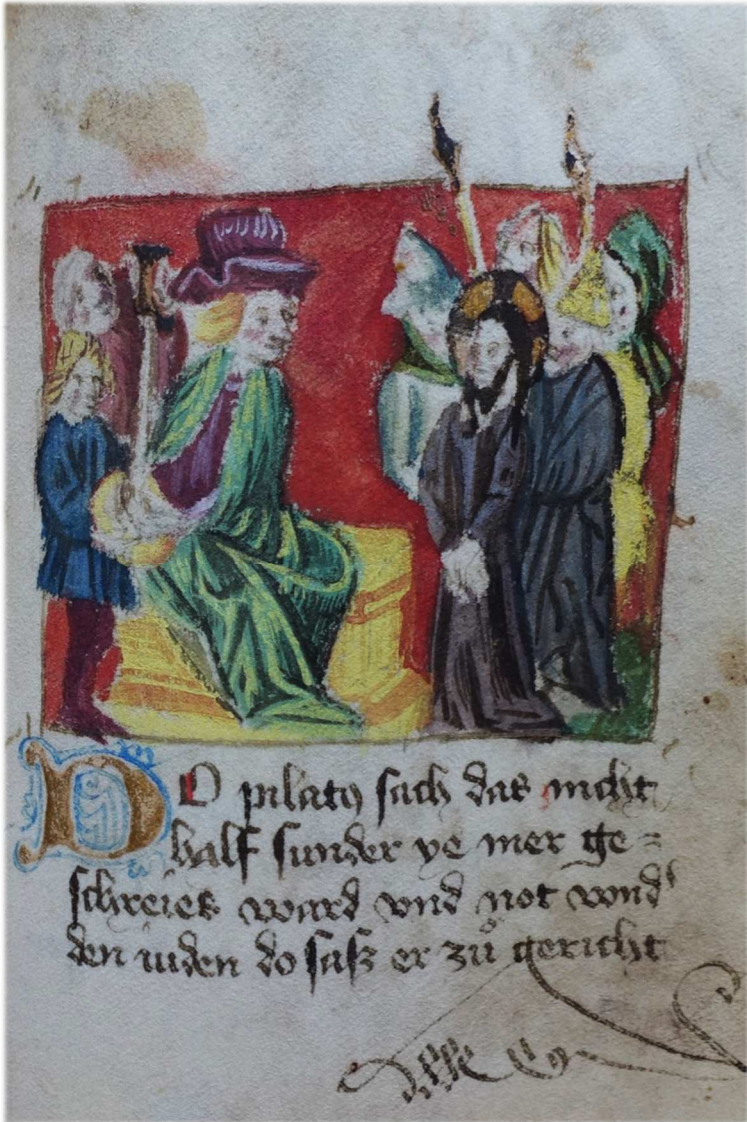 DO pilatꝰ sach das nicht
half sunder ye mer ge=
schreies ward vnd not vond'
den iuden do sasz er zů gericht